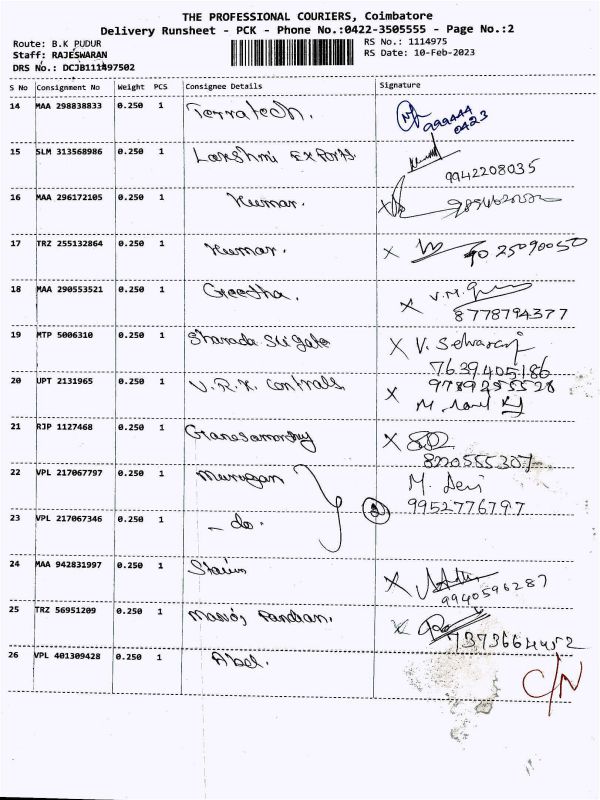 THE PROFESSIONAL COURIERS, Coimbatore
Delivery Runsheet - PCK - Phone No.:0422-3505555 - Page No.:2
Route: B.K PUDUR
Staff: RAJESWARAN
DRS No.: DCJB111497502
RS No.: 1114975
RS Date: 10-Feb-2023
S No Consignment No Weight PCS Consignee Details Signature
14 MAA 298838833 0.250 1 Terratech.
15 SLM 313568986 0.250 1 Lakshmi Exports 9942208035
16 MAA 296172105 0.250 1 Kumar.
17 TRZ 255132864 0.250 1 Kumar. 90 25090050
18 MAA 290553521 0.250 1 Geetha. V.M.
8778794377
19 MTP 5006310 0.250 1 Sharada X V. Selvaraj
7639405186
20 UPT 2131965 0.250 1 V.R.K. Controls X 9789255528
21 RJP 1127468 0.250 1 Ganesamorthy X
8220555307
22 VPL 217067797 0.250 1 Murugan M. Devi
2 9952776797
23 VPL 217067346 0.250 1 - do.
24 MAA 942831997 0.250 1 X 9940596287
25 TRZ 56951209 0.250 1 X 7373664452
26 VPL 401309428 0.250 1 Abel. C/N